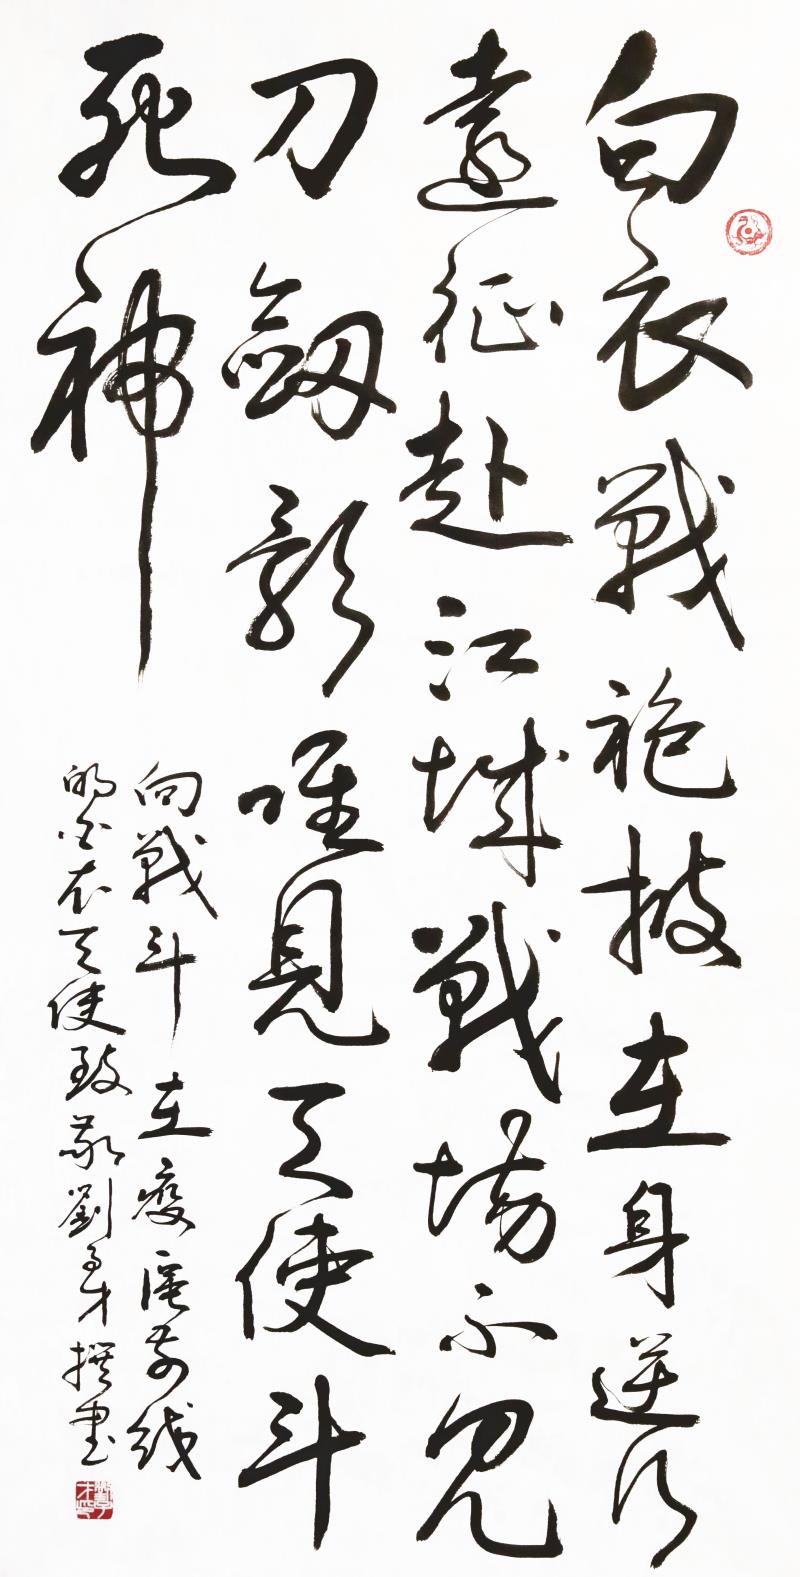 白衣戰袍披在身逆行
遠征赴江城戰場不見
刀劍影唯見天使斗
死神
向戰斗在疫區前线
的白衣天使致敬劉才撰書